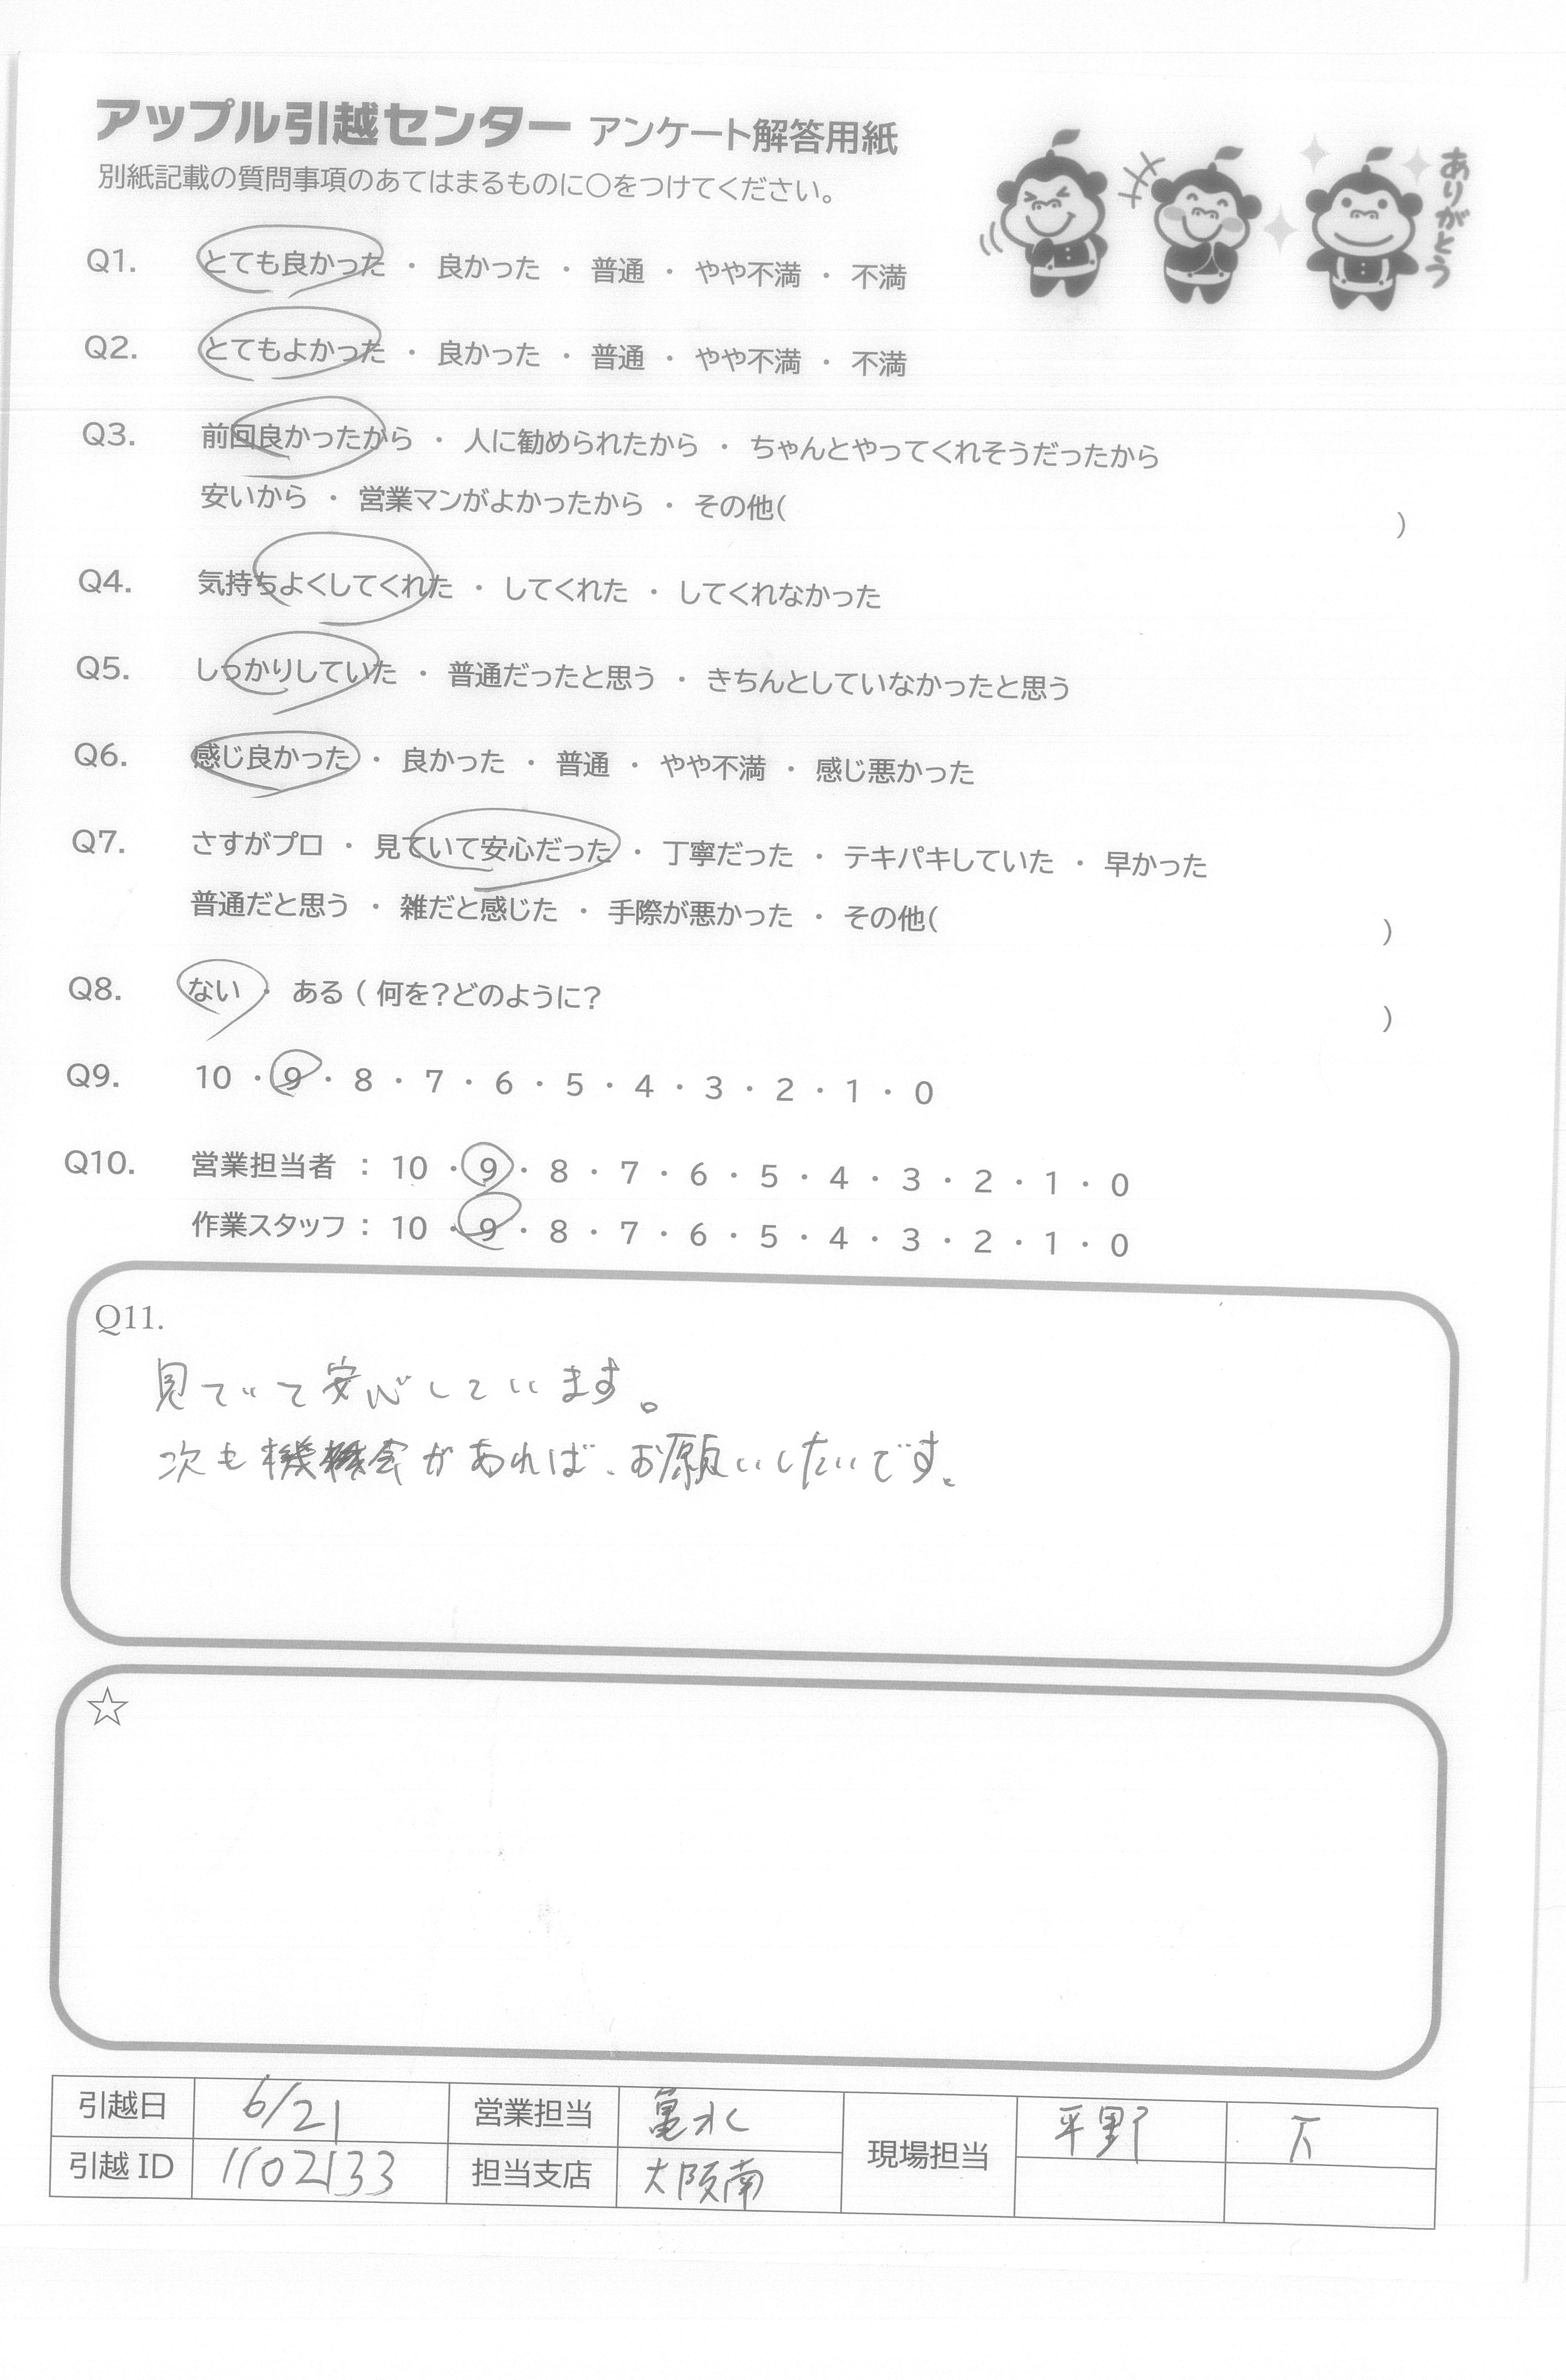 アップル引越センター アンケート解答用紙
別紙記載の質問事項のあてはまるものに○をつけてください。
ありがとう
Q1. とても良かった ・ 良かった ・ 普通 ・ やや不満 ・ 不満
Q2. とてもよかった ・ 良かった ・ 普通 ・ やや不満 ・ 不満
Q3. 前回良かったから ・ 人に勧められたから ・ ちゃんとやってくれそうだったから
安いから ・ 営業マンがよかったから ・ その他( )
Q4. 気持ちよくしてくれた ・ してくれた ・ してくれなかった
Q5. しっかりしていた ・ 普通だったと思う ・ きちんとしていなかったと思う
Q6. 感じ良かった ・ 良かった ・ 普通 ・ やや不満 ・ 感じ悪かった
Q7. さすがプロ ・ 見ていて安心だった ・ 丁寧だった ・ テキパキしていた ・ 早かった
普通だと思う ・ 雑だと感じた ・ 手際が悪かった ・ その他( )
Q8. ない ・ ある ( 何を?どのように? )
Q9. 10 ・ 9 ・ 8 ・ 7 ・ 6 ・ 5 ・ 4 ・ 3 ・ 2 ・ 1 ・ 0
Q10. 営業担当者 : 10 ・ 9 ・ 8 ・ 7 ・ 6 ・ 5 ・ 4 ・ 3 ・ 2 ・ 1 ・ 0
作業スタッフ : 10 ・ 9 ・ 8 ・ 7 ・ 6 ・ 5 ・ 4 ・ 3 ・ 2 ・ 1 ・ 0
Q11.
見ていて安心しています。
次も機会があれば、お願いしたいです。
☆
引越日 6/21 営業担当 亀水 現場担当 平野
引越 ID 1102133 担当支店 大阪南